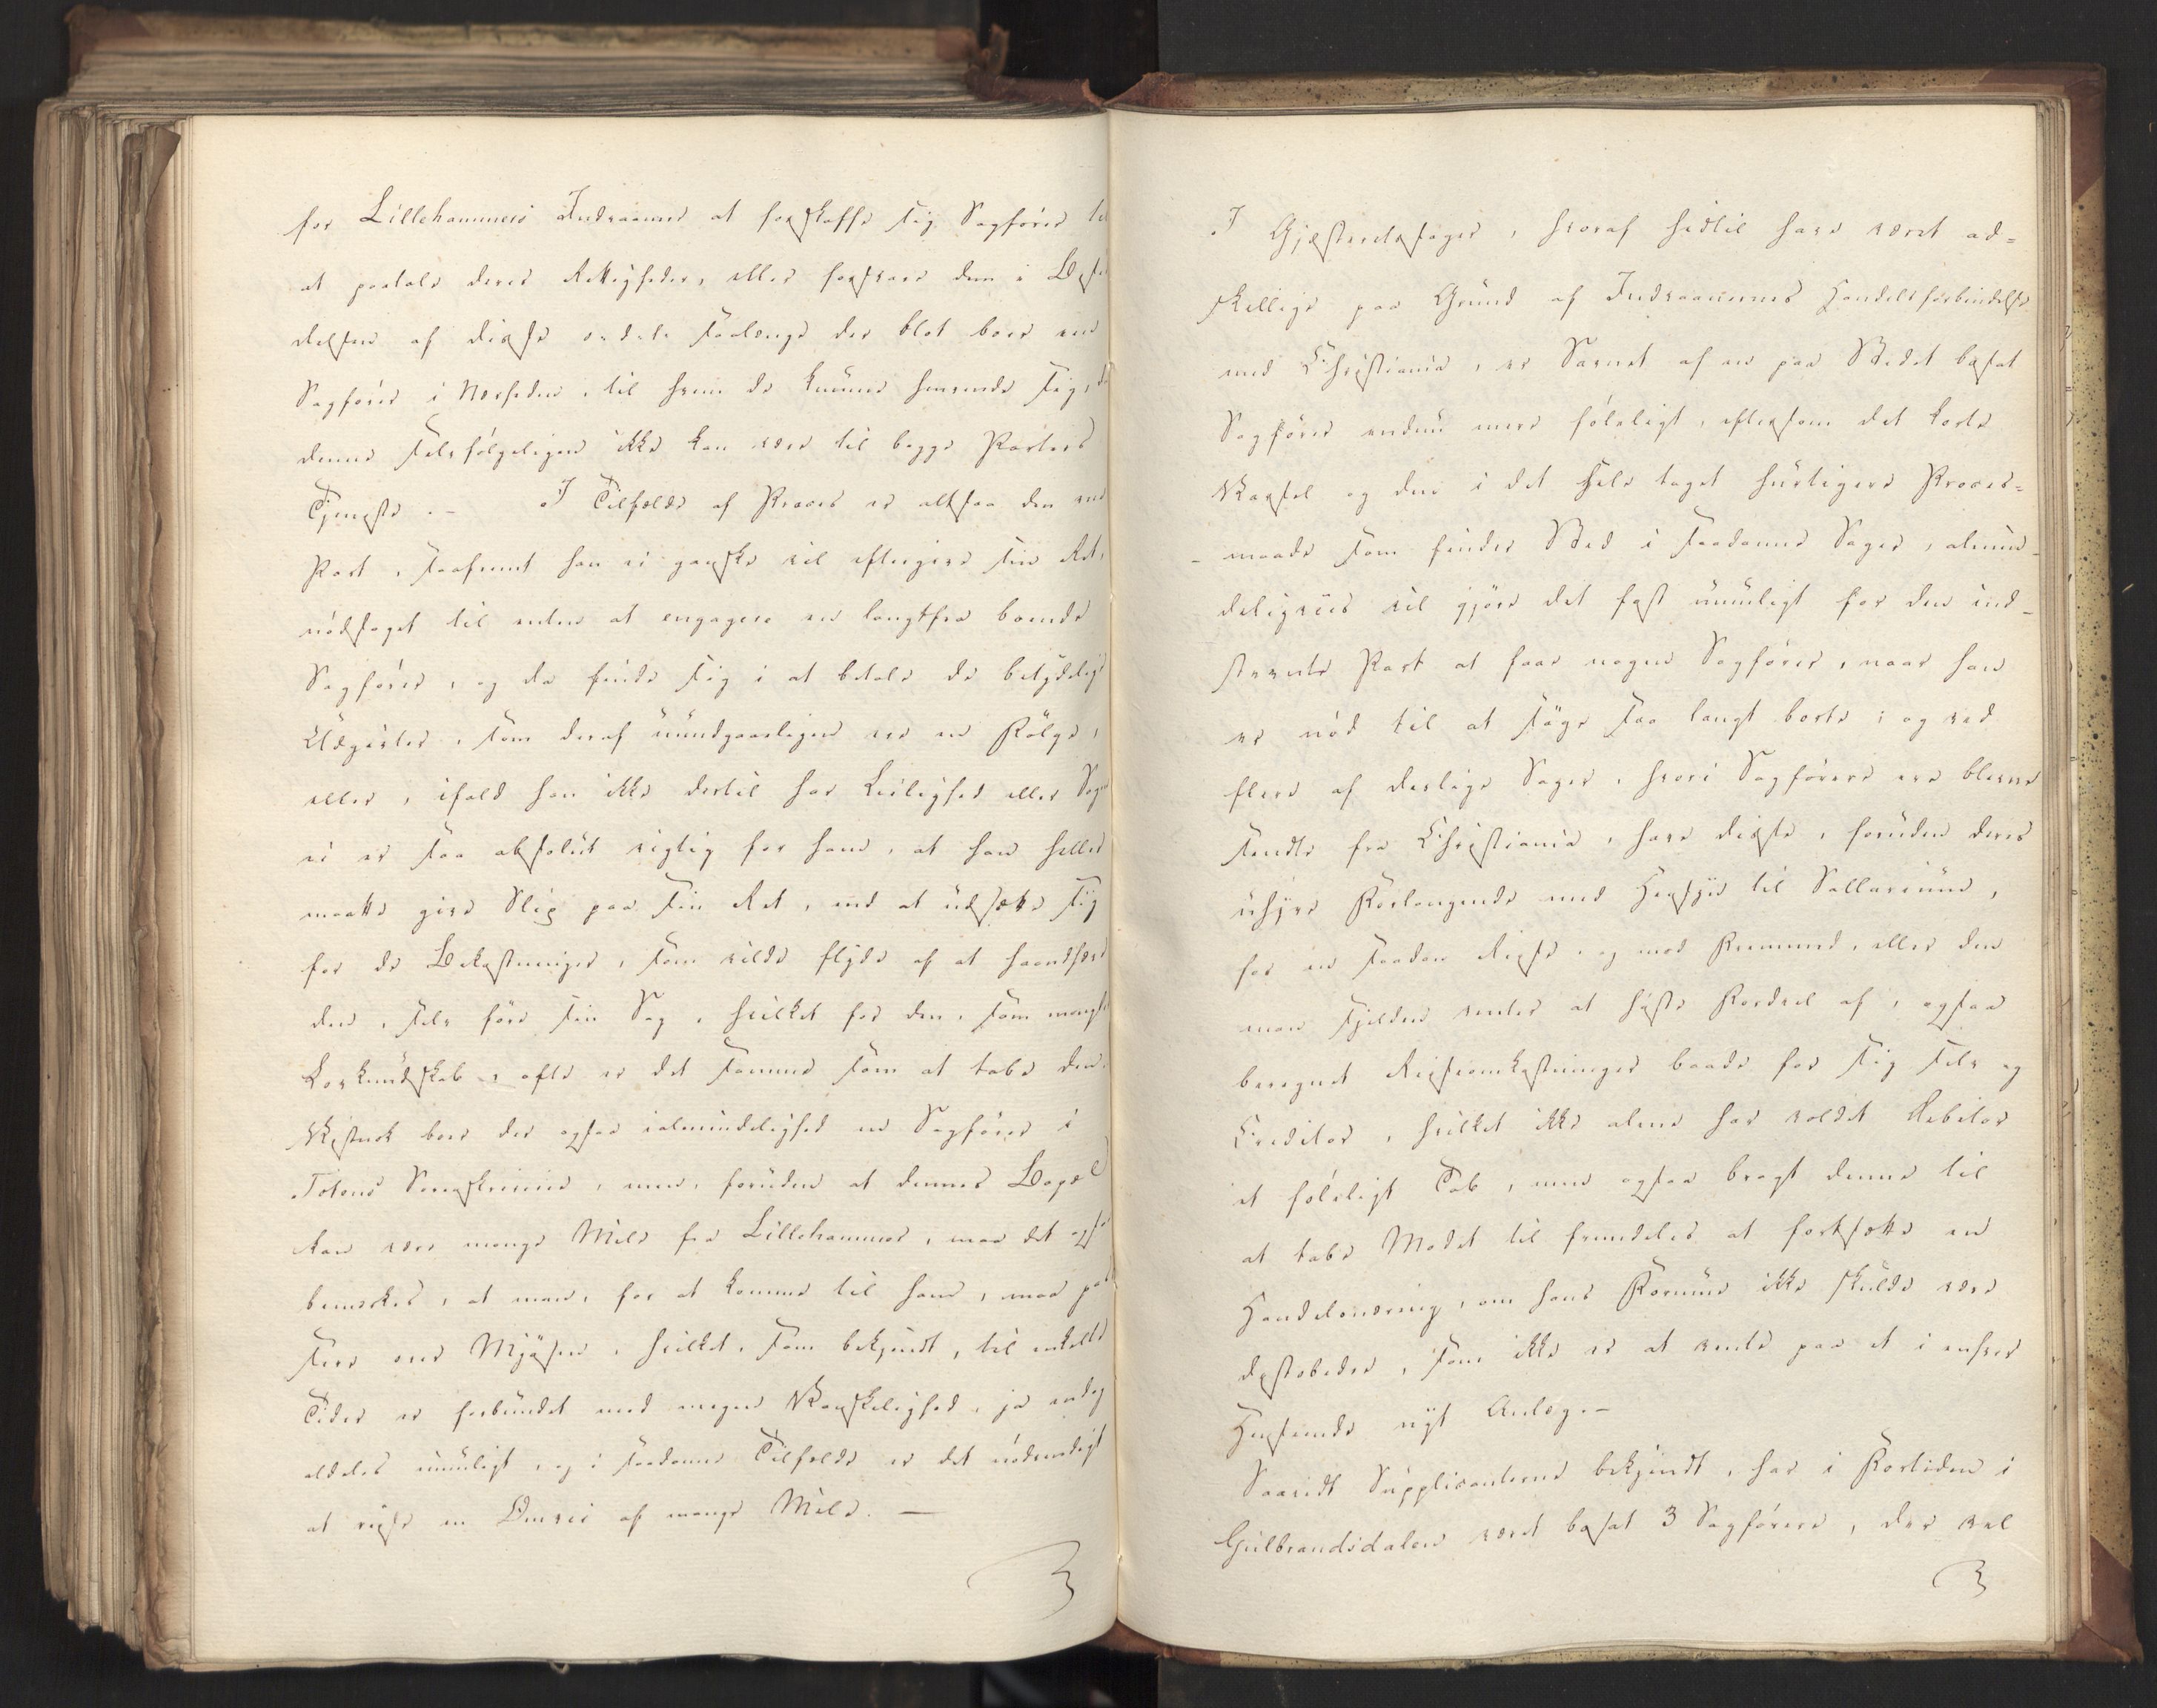 for Lillehammers Indvaanere at forskaffe sig Sagfører til
at paatale deres Rettigheder, eller forsvare dem i Besid
delsen af disse ædele saalænge der blot boer een
Sagfører i Nærheden, til hvem de kunne henvende sig, da
denne selvfølgeligen ikke kan være til begge Parters
Tjeneste. – I Tilfælde af Proces er altsaa den ene
Part, saafremt han ei ganske vil eftergive sin Ret,
nødsaget til enten at engagere en langtfra boende
Sagfører, og da finde sig i at betale de betydelige
Udgivter, som deraf uundgaaeligen ere en Følge,
eller, ifald han ikke dertil har Leilighed eller Sagen
ei er saa absolut vigtig for ham, at han heller
maatte give Slip paa sin Ret, end at udsætte sig
for de Bekostninger, som vilde flyde af at haandhæve
den, selv føre sin Sag, hvilket for den, som mangler
Lovkundskab, ofte er det samme som at tabe den.
Vistnok boer der ogsaa ialmindelighed en Sagfører i
Totens Sorenskriverie, men, foruden at dennes Bopæl
kan være mange Mile fra Lillehammer, maa det ogsaa
bemærkes, at man, for at komme til ham, maa pas
sere over Mjøsen, hvilket, som bekjendt, til enkelte
Tider er forbundet med megen Vanskelighed, ja endog
aldeles umuligt, og i saadanne Tilfælde er det nødvendigt
at reise en Omvei af mange Mile. —
I Gjæsteretssager, hvoraf hidtil have været ad=
skillige paa Grund af Indvaanernes Handelsforbindelse
med Christiania, er Savnet af en paa Stedet bosat
Sagfører endnu mere føleligt, eftersom det korte
Varsel og den i det Hele taget hurtigere Proces=
maade som finder Sted i saadanne Sager, almin-
deligviis vil gjøre det fast umuligt for den ind-
stevnte Part at faae nogen Sagfører, naar han
er nød til at søge saa langt borte; og ved
flere af deslige Sager, hvori Sagførere ere blevne
sendte fra Christiania, have disse, foruden deres
uhyre Forlangende med Hensyn til Sallarium,
for en saadan Reise, og mod Fremmed, eller den
man sjelden venter at høste Fordeel af, ogsaa
beregnet Reiseomkostninger baade for sig selv og
Creditor, hvilket ikke alene har voldet Debitor
et føleligt Tab, men ogsaa bragt denne til
at tabe Modet til fremdeles at fortsætte en
Handelsnæring, om hans Formue ikke skulde være
destobedre, som ikke er at vente paa et i enhver
Henseende nyt Anlæg. –
Saavidt Supplicanterne bekjendt, har i Fortiden i
Gulbrandsdalen været bosat 3 Sagførere, der vel